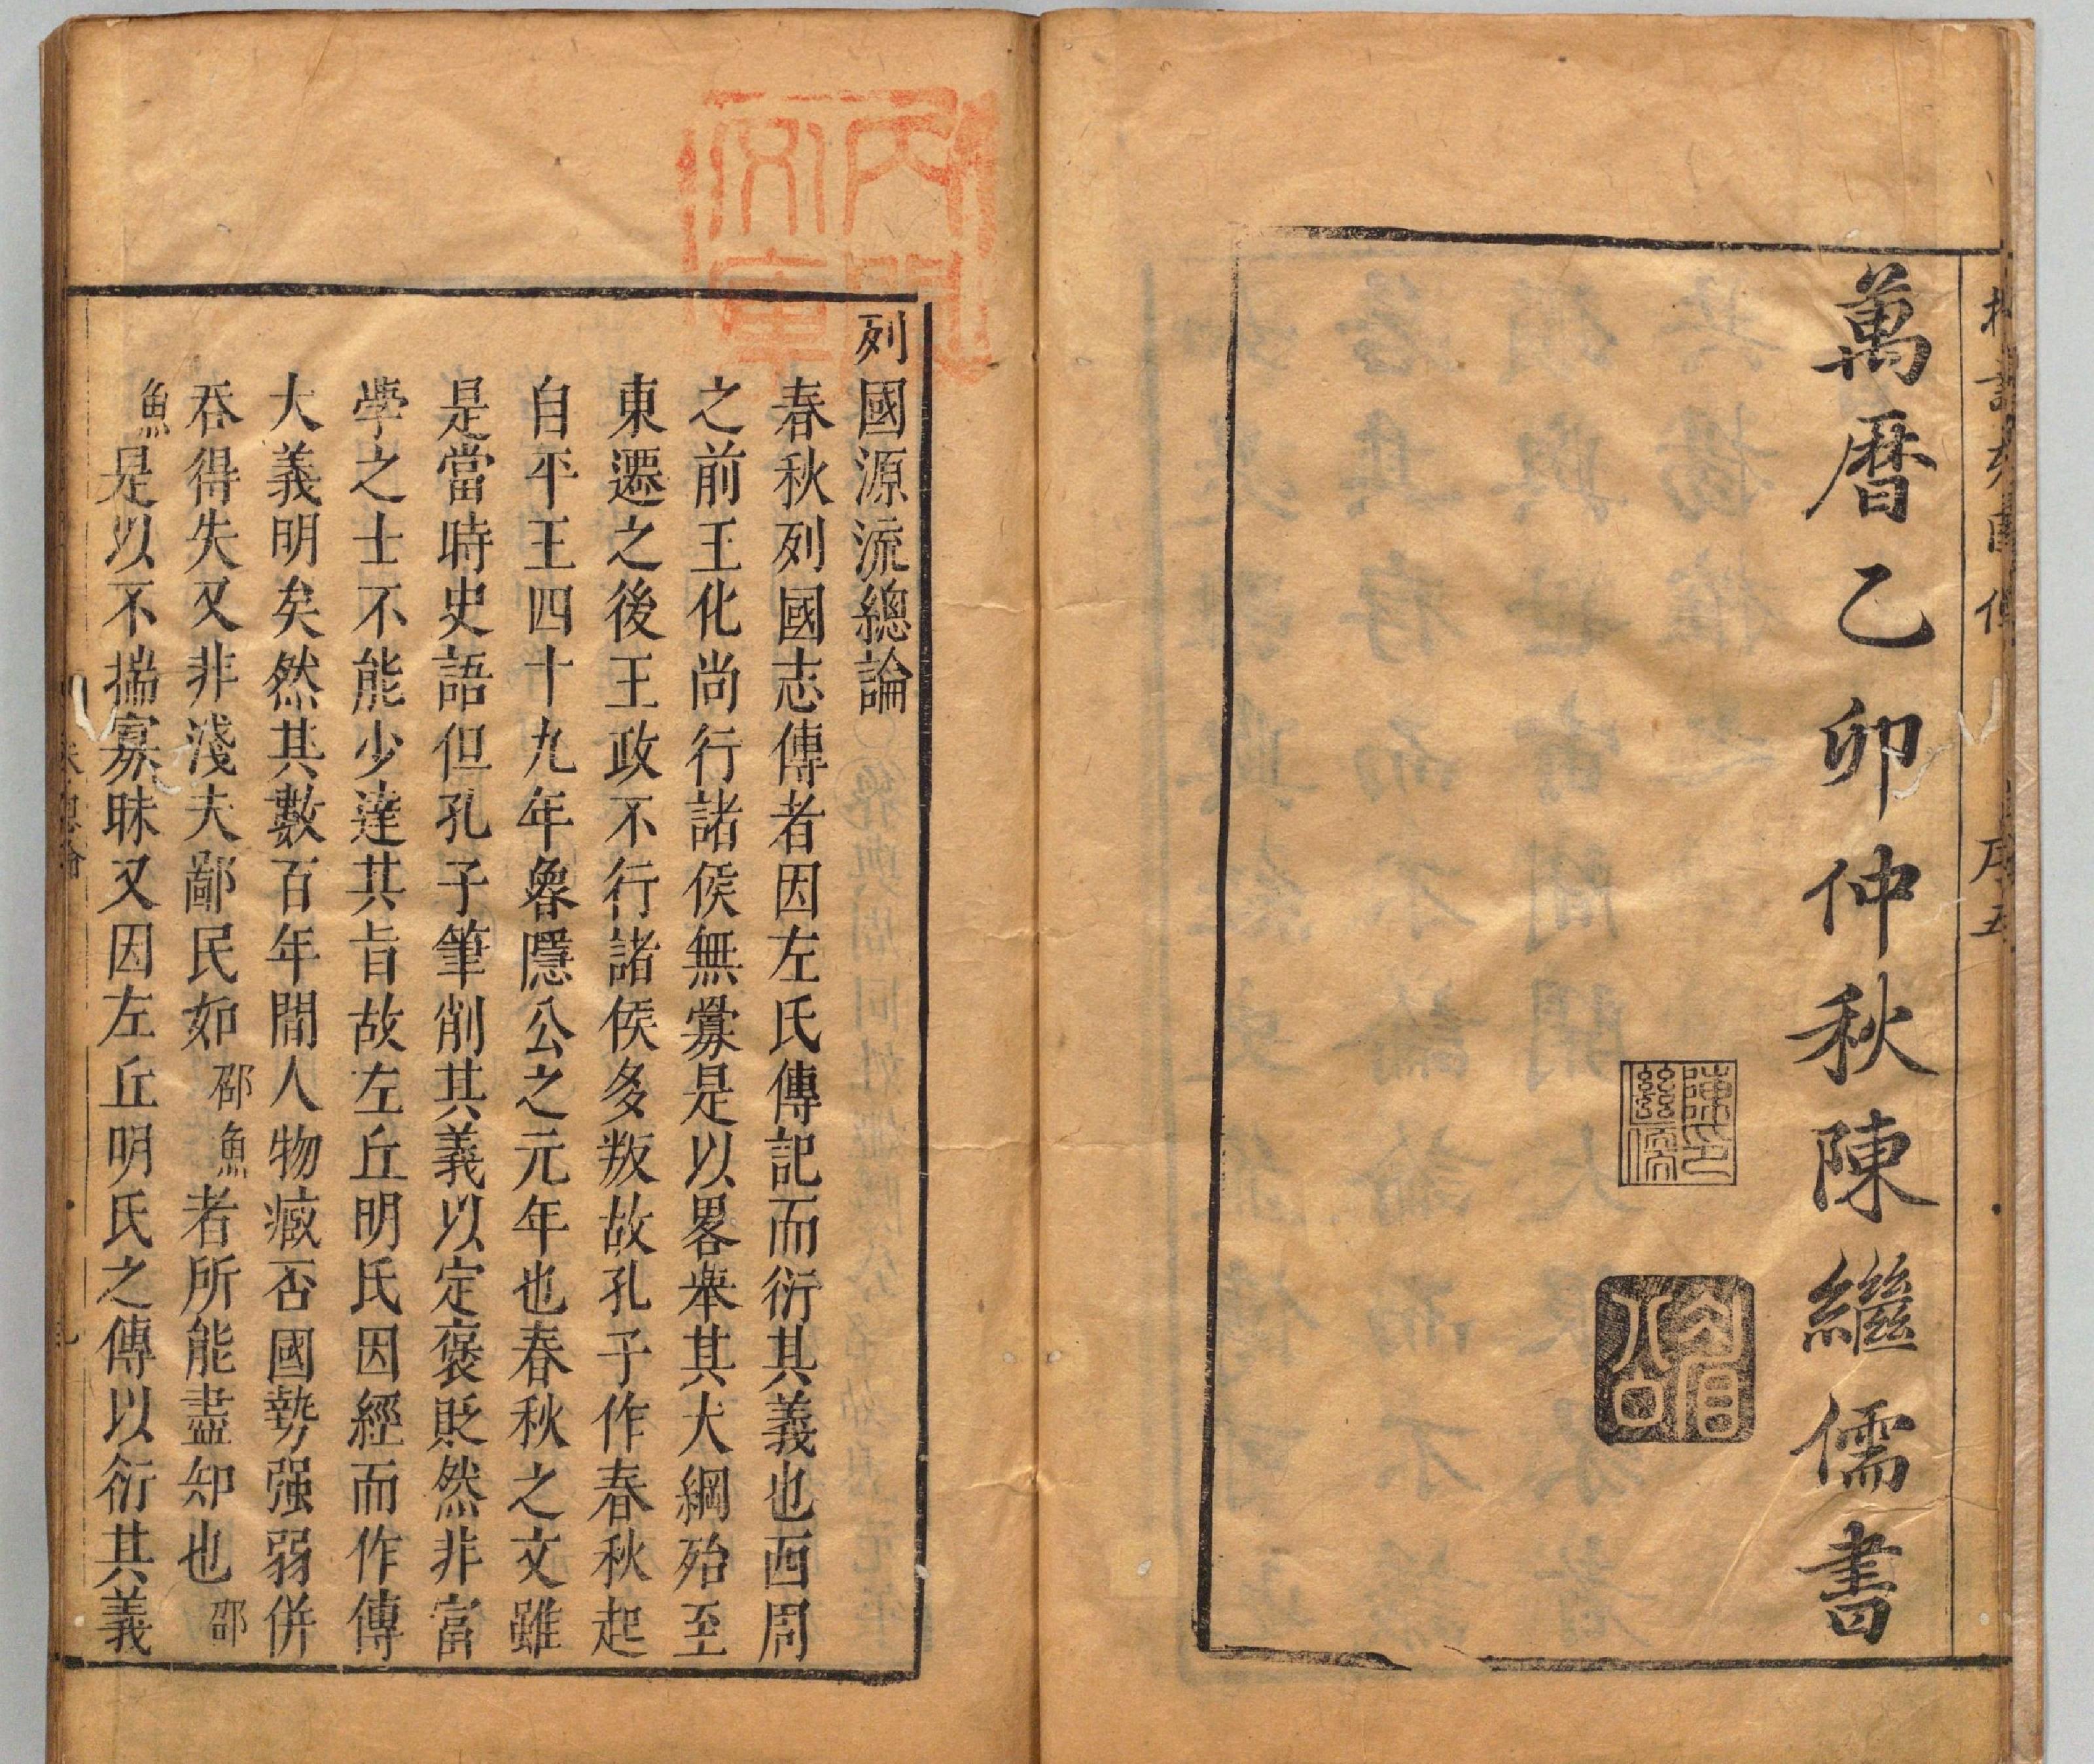 萬曆乙卯仲秋陳繼儒書
陳印
繼儒
眉
公
序五
列國源流總論
春秋列國志傳者因左氏傳記而衍其義也西周
之前王化尚行諸侯無釁是以畧舉其大綱殆至
東遷之後王政不行諸侯多叛故孔子作春秋起
自平王四十九年魯隱公之元年也春秋之文雖
是當時史語但孔子筆削其義以定褒貶然非富
學之士不能少達其旨故左丘明氏因經而作傳
大義明矣然其數百年間人物臧否國勢强弱併
吞得失又非淺夫鄙民如邵魚者所能盡知也邵
魚是以不揣寡昧又因左丘明氏之傳以衍其義
內閣
文庫